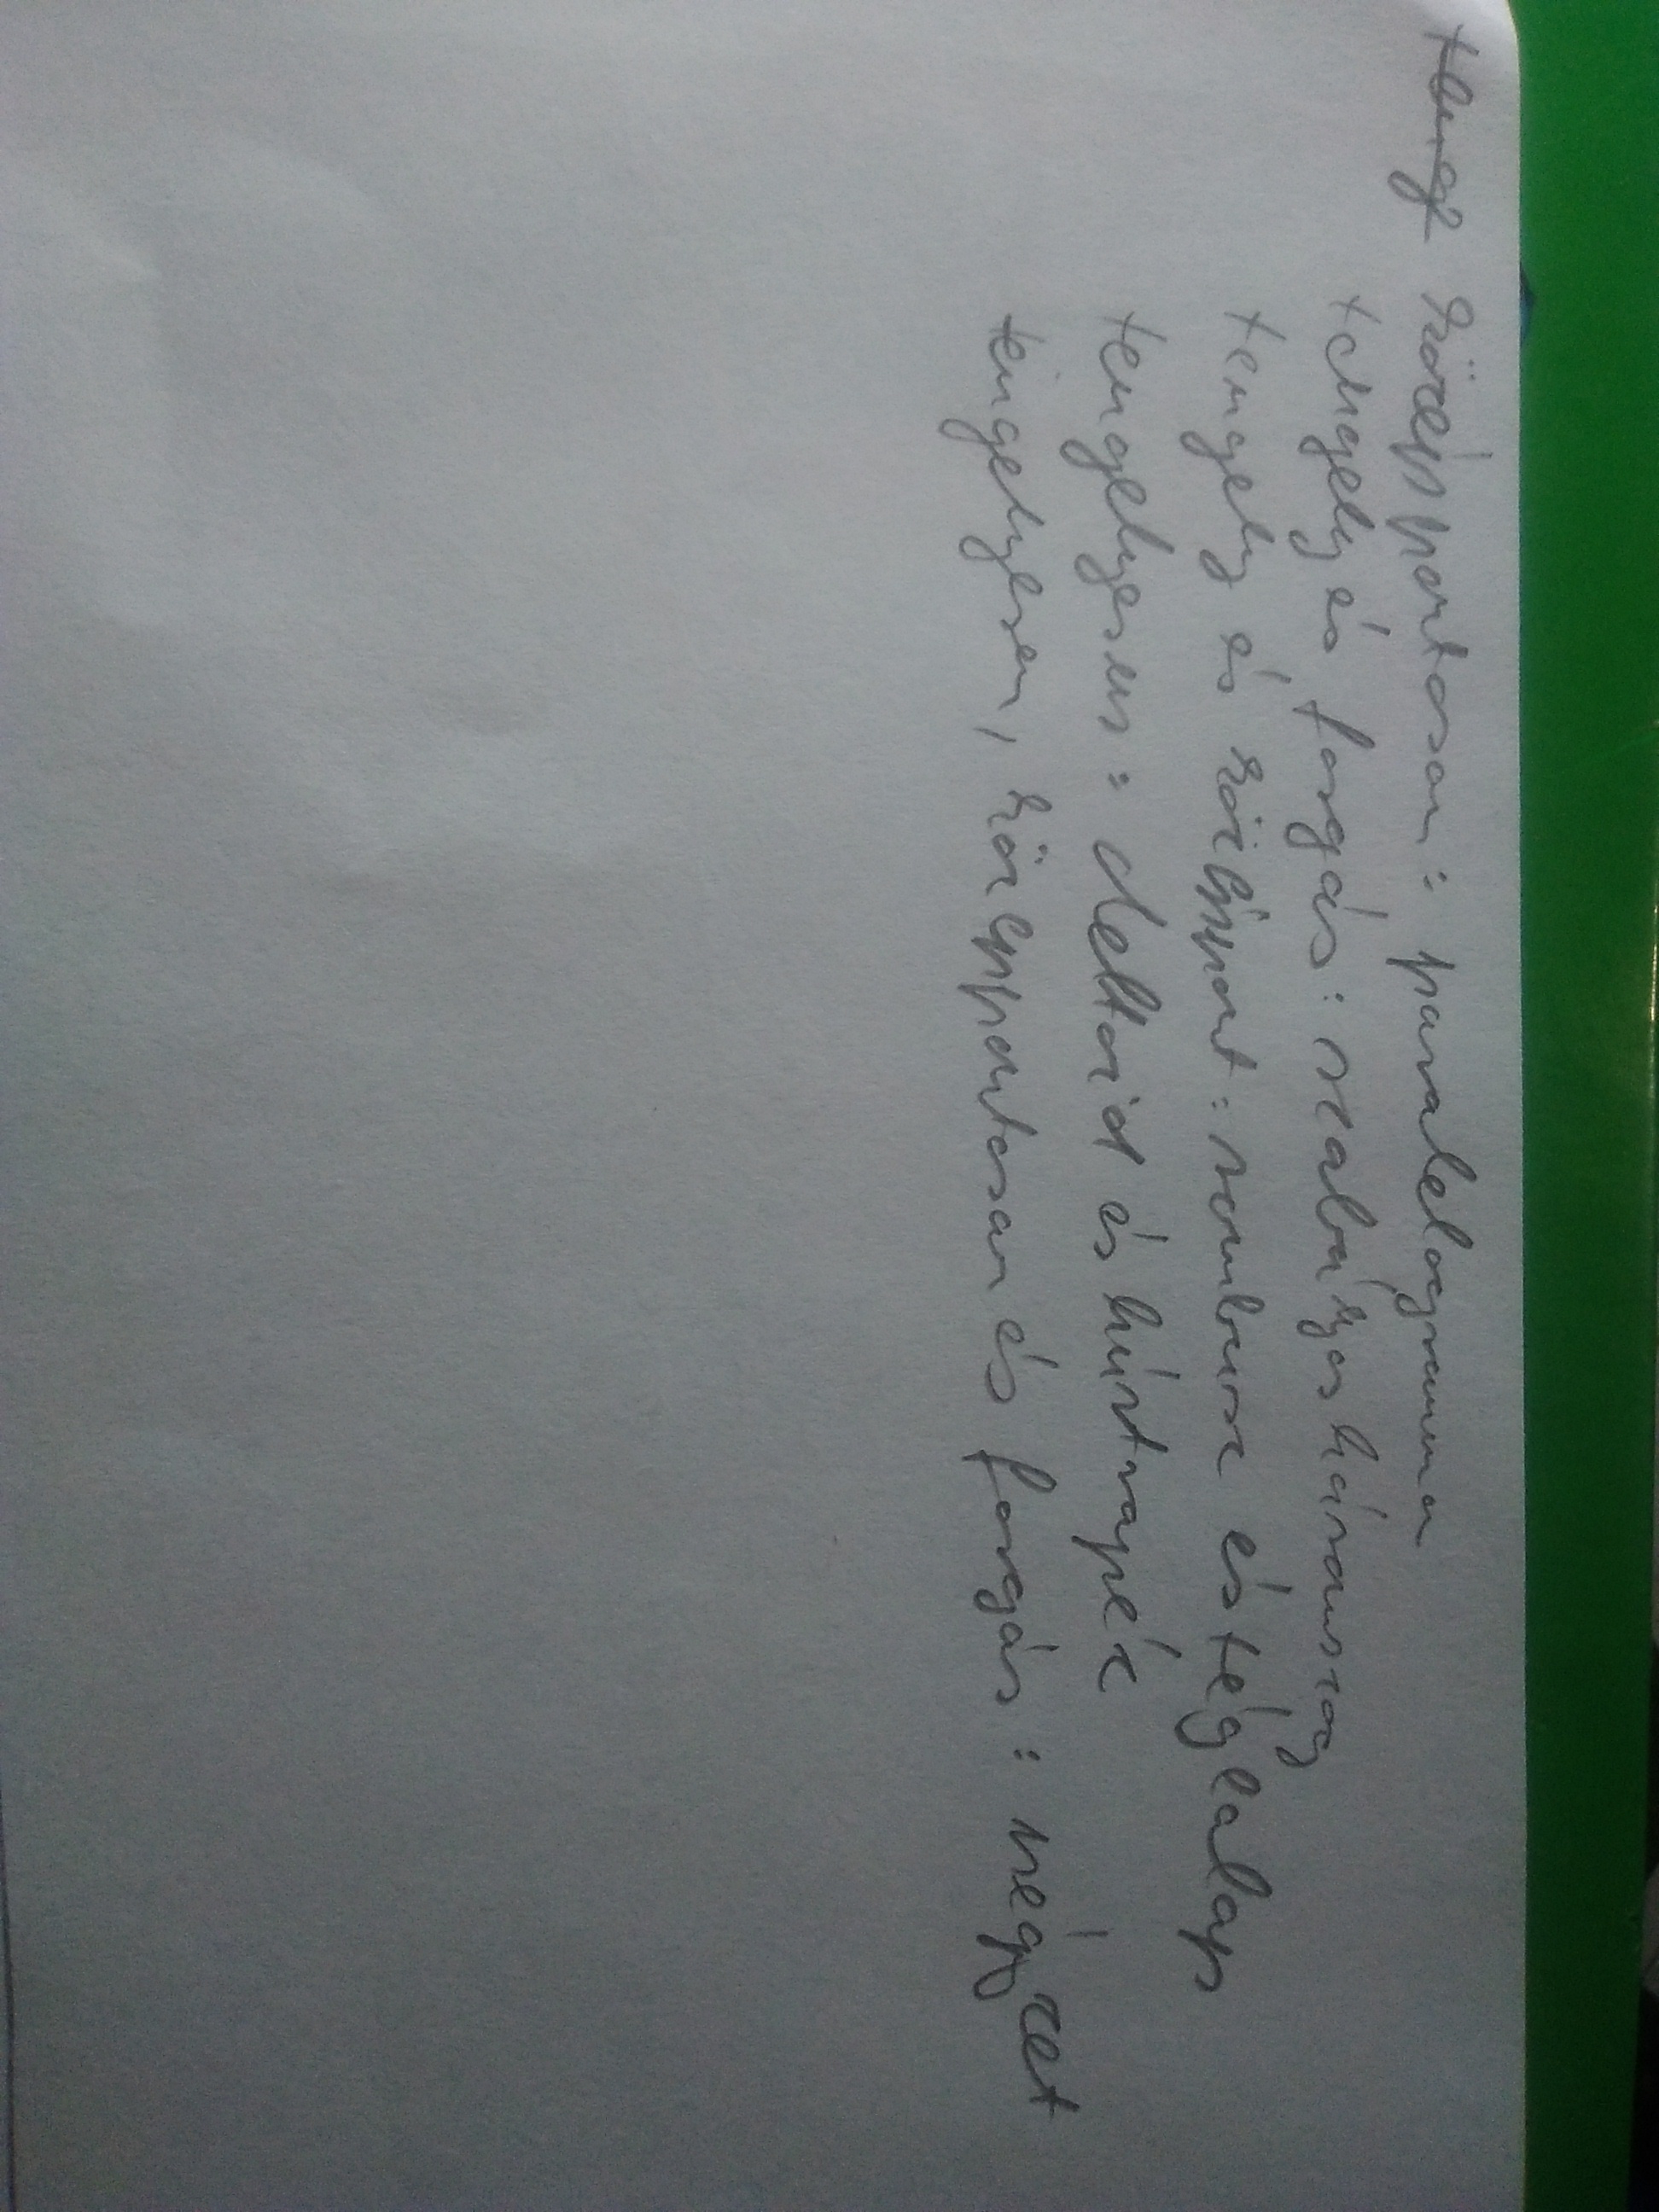 középpontosan: paralelogramma
tengely és forgás: szabályos háromszög
tengely és középpont: rombusz és téglalap
tengelyesen: deltoid és húrtrapéz
tengelyesen, középpontosan és forgás: négyzet